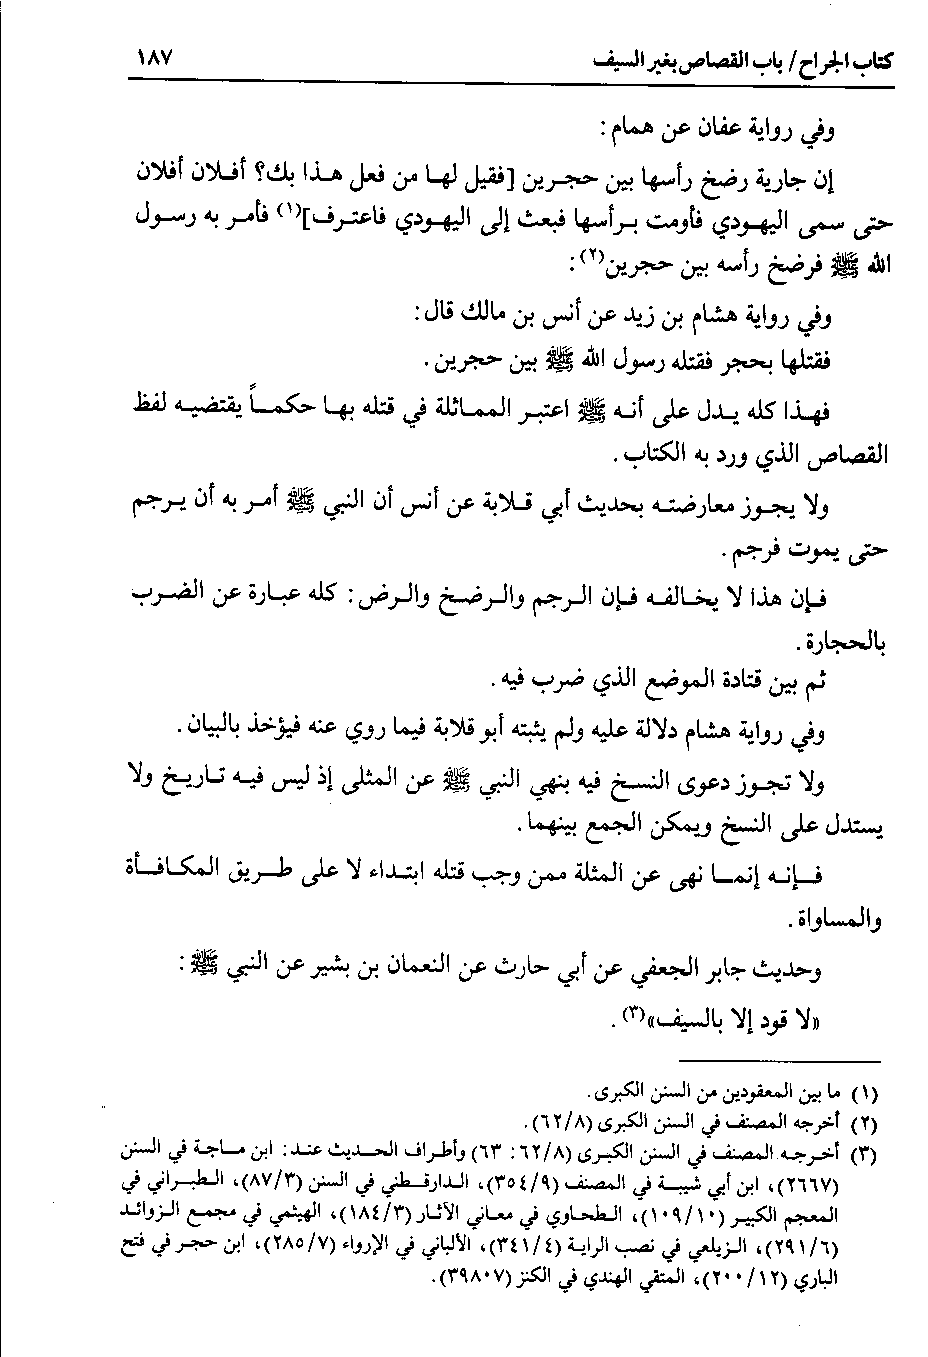 كتاب الجراح / باب القصاص بغير السيف ١٨٧
وفي رواية عفان عن همام :
إن جارية رضخ رأسها بين حجرين [فقيل لها من فعل هذا بك؟ أفلان أفلان
حتى سمى اليهودي فأومت برأسها فبعث إلى اليهودي فاعترف](١) فأمر به رسول
الله ﷺ فرضخ رأسه بين حجرين(٢) :
وفي رواية هشام بن زيد عن أنس بن مالك قال :
فقتلها بحجر فقتله رسول الله ﷺ بين حجرين .
فهذا كله يدل على أنه ﷺ اعتبر المماثلة في قتله بها حكماً يقتضيه لفظ
القصاص الذي ورد به الكتاب .
ولا يجوز معارضته بحديث أبي قلابة عن أنس أن النبي ﷺ أمر به أن يرجم
حتى يموت فرجم .
فإن هذا لا يخالفه فإن الرجم والرضخ والرض : كله عبارة عن الضرب
بالحجارة .
ثم بين قتادة الموضع الذي ضرب فيه .
وفي رواية هشام دلالة عليه ولم يثبته أبو قلابة فيما روي عنه فيؤخذ بالبيان .
ولا تجوز دعوى النسخ فيه بنهي النبي ﷺ عن المثلى إذ ليس فيه تاريخ ولا
يستدل على النسخ ويمكن الجمع بينهما .
فإنه إنما نهى عن المثلة ممن وجب قتله ابتداء لا على طريق المكافأة
والمساواة .
وحديث جابر الجعفي عن أبي حارث عن النعمان بن بشير عن النبي ﷺ :
«لا قود إلا بالسيف»(٣) .
(١) ما بين المعقودين من السنن الكبرى.
(٢) أخرجه المصنف في السنن الكبرى (٦٢/٨).
(٣) أخرجه المصنف في السنن الكبرى (٦٢/٨: ٦٣) وأطراف الحديث عند: ابن ماجة في السنن
(٢٦٦٧)، ابن أبي شيبة في المصنف (٣٥٤/٩)، الدارقطني في السنن (٨٧/٣)، الطبراني في
المعجم الكبير (١٠٩/١٠)، الطحاوي في معاني الآثار (١٨٤/٣)، الهيثمي في مجمع الزوائد
(٢٩١/٦)، الزيلعي في نصب الراية (٣٤١/٤)، الألباني في الإرواء (٢٨٥/٧)، ابن حجر في فتح
الباري (٢٠٠/١٢)، المتقي الهندي في الكنز (٣٩٨٠٧).